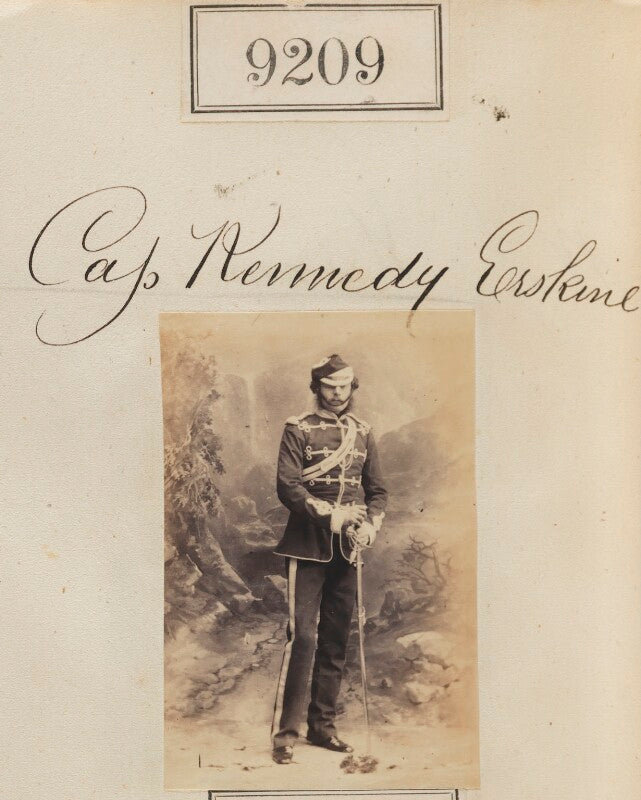 9209
Cap Kennedy Erskine